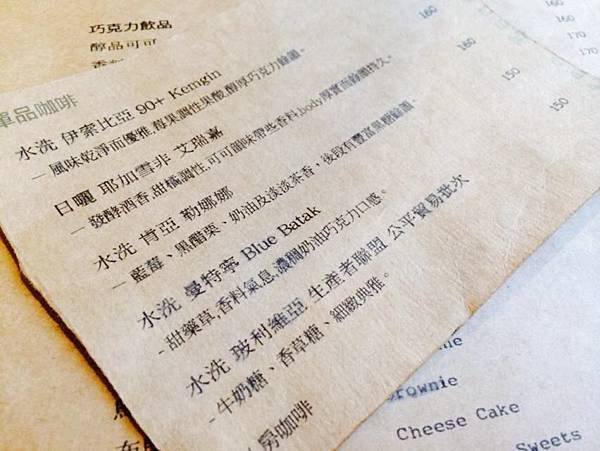 巧克力飲品
醇品可可
單品咖啡
水洗 伊索比亞 90+ Kemgin 160
－風味乾淨而優雅,莓果調性果酸,醇厚巧克力餘韻。
日曬 耶加雪非 艾瑞嘉 160
－發酵酒香,甜橘調性,可可韻味帶些香料,body厚實而餘韻持久。
水洗 肯亞 勒娜娜 150
－藍莓、黑醋栗、奶油及淡淡茶香，後段有豐富黑糖餘韻。
水洗 曼特寧 Blue Batak 150
－甜藥草,香料氣息,濃稠奶油巧克力口感。
水洗 玻利維亞 生產者聯盟 公平貿易批次
－牛奶糖、香草糖、細緻典雅。
房咖啡
160
170
170
Brownie
Cheese Cake
Sweets